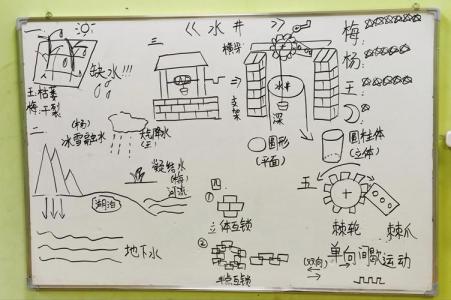 《水井》
一
缺水!!!
王:枯萎
梅:干裂
二
(杨)
冰雪融水
大气降水
(王)
凝结水
(梅)
河流
湖泊
地下水
三
横梁
支架
水井
深
圆形
(平面)
圆柱体
(立体)
梅:
杨:
王:
四
①
立体互锁
②
半点互锁
五
棘轮
棘爪
单向间歇运动
(双向)